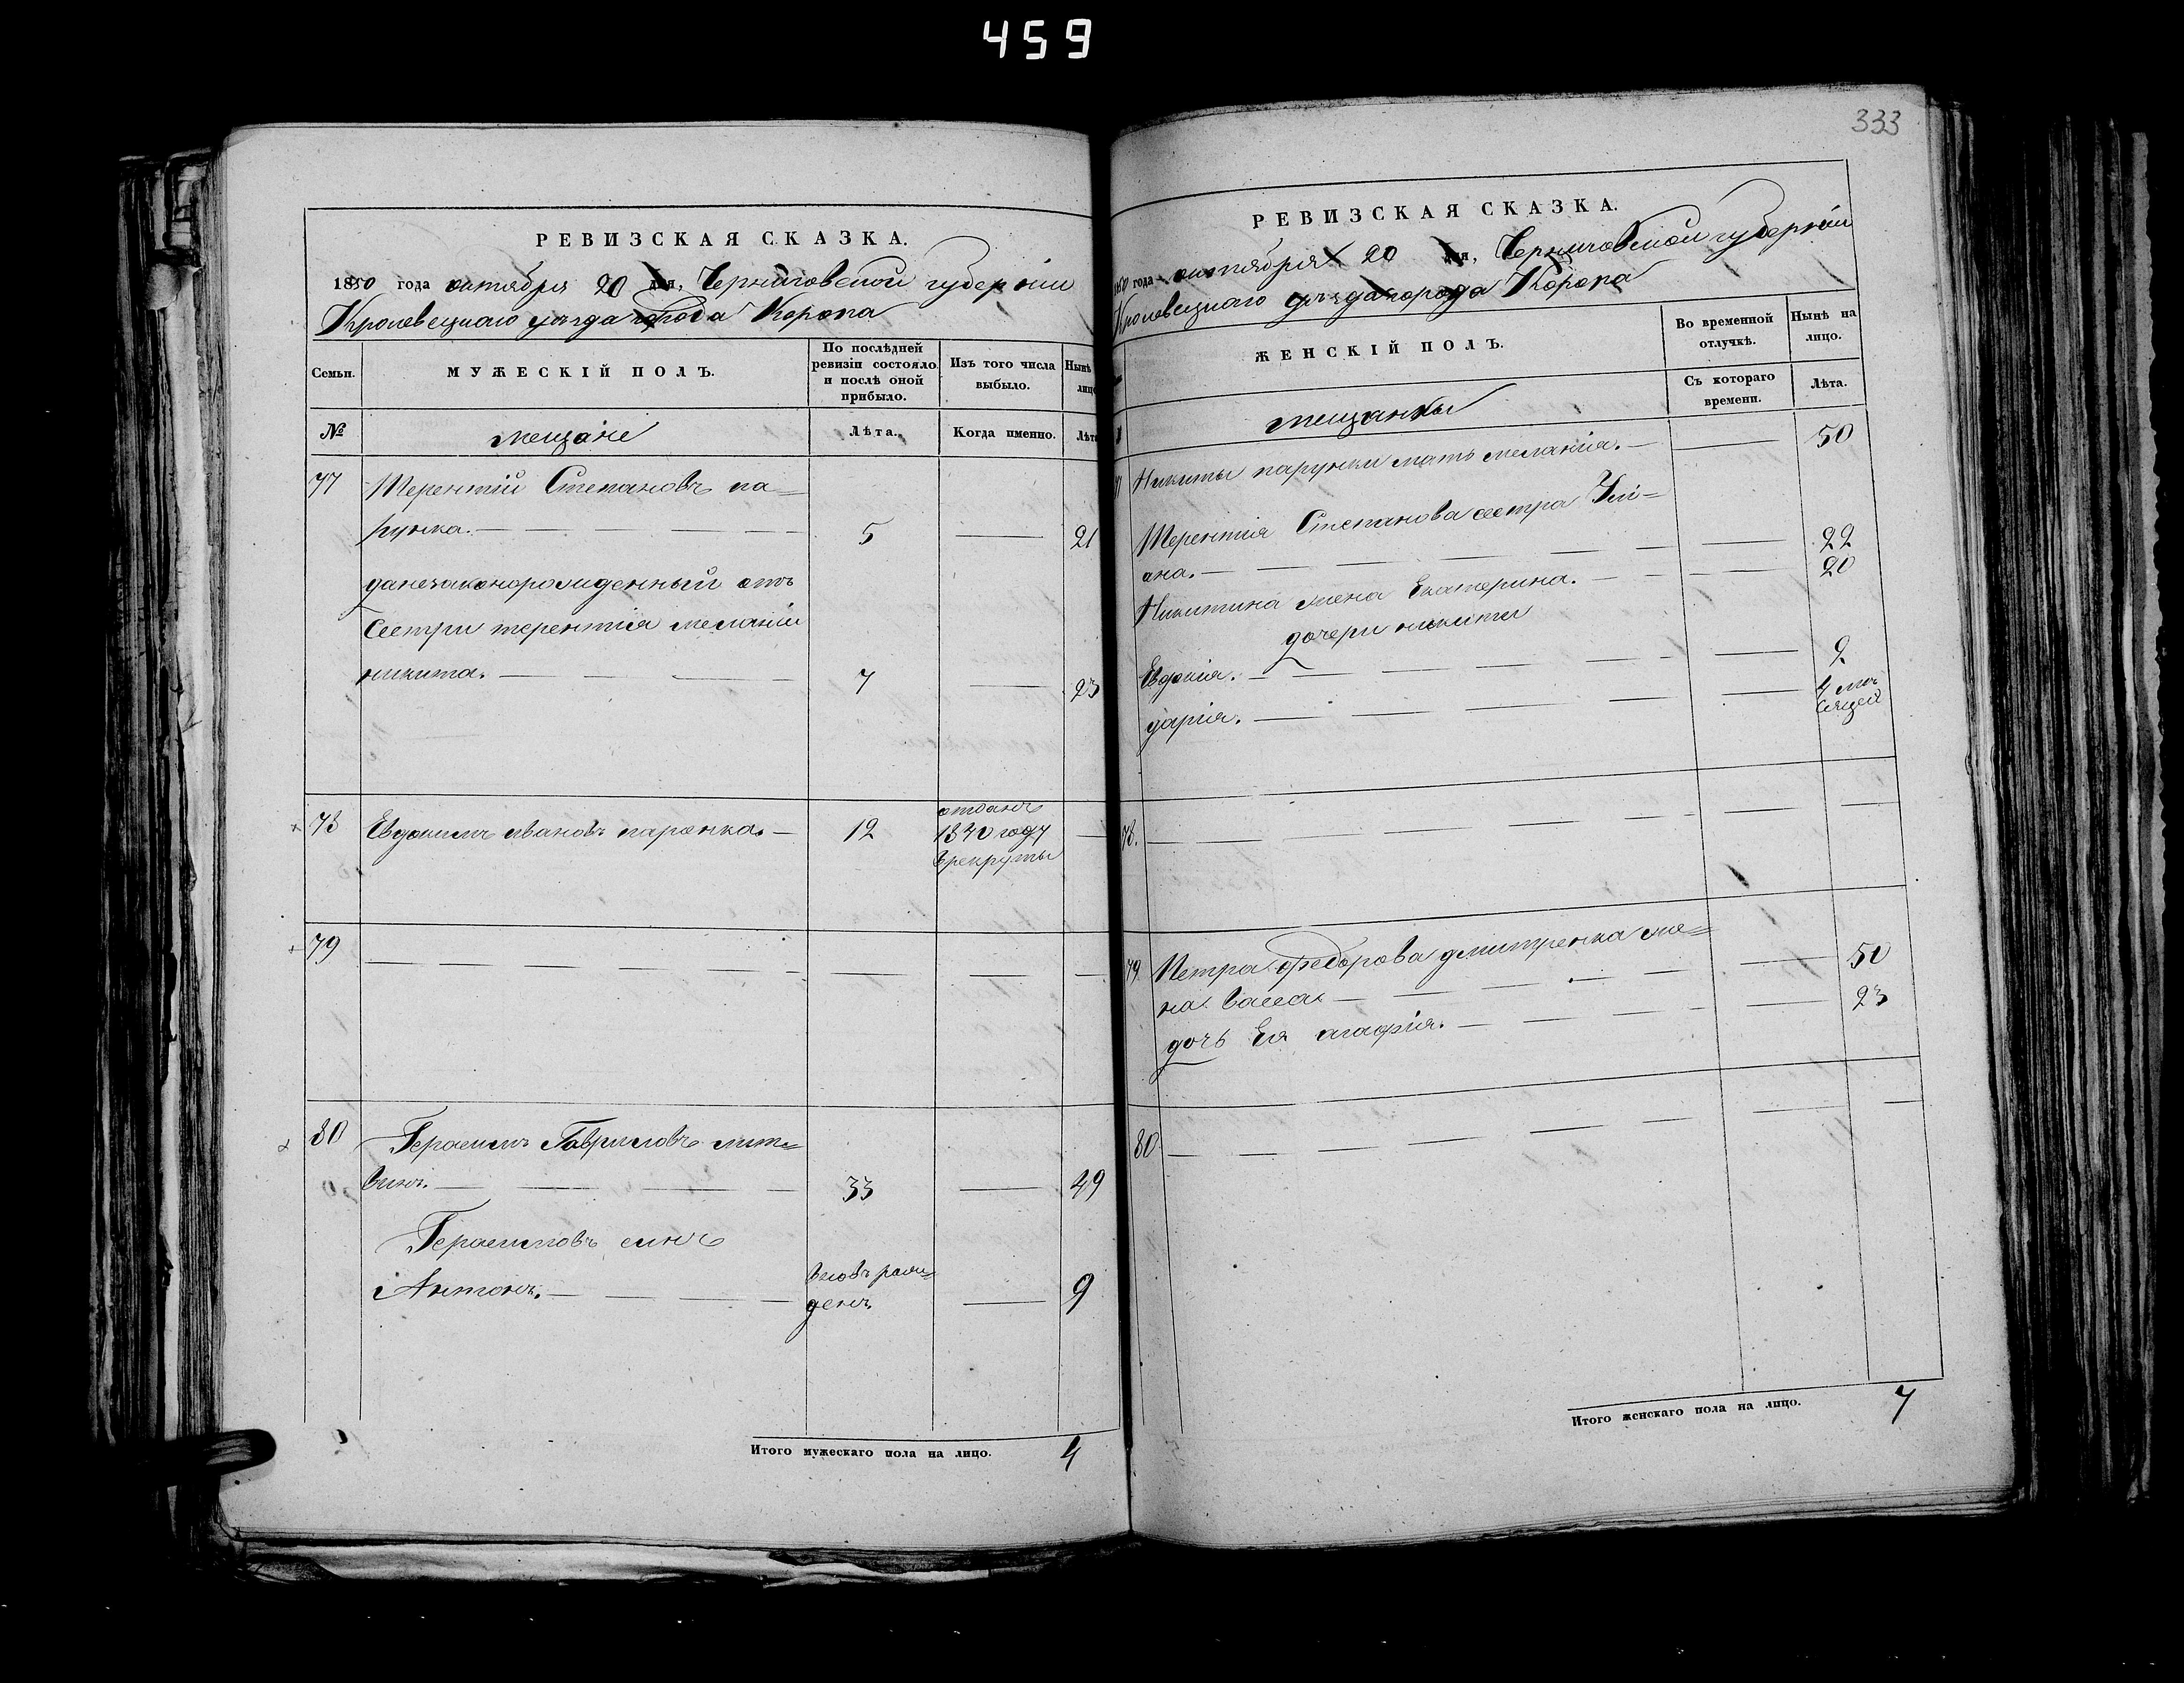 459
333
РЕВИЗСКАЯ СКАЗКА.
1850 года октября 20 дня, Черниговской губернiи
Кролевецкаго уезда города Коропа
Семьи.
МУЖЕСКIЙ ПОЛЪ.
По послѣдней ревизiи состояло и послѣ оной прибыло.
Изъ того числа выбыло.
Нынѣ
лицо
№
мещане
Лѣта.
Когда именно.
Лѣта
77 Терентiй Степановъ па=
рунка. — 5 — 21
да незаконорожденный отъ
Сестри терентiя меланiи
никита. — 7 — 23
78 Евдокимъ ивановъ паронка. — 12 отданъ
1840 году
в рекруты
79
80 Герасимъ Гавриловъ лит=
винъ. — 33 — 49
Герасимовъ синъ
Антонъ. — вновь рож=
денъ — 9
Итого мужескаго пола на лицо. 4
РЕВИЗСКАЯ СКАЗКА.
1850 года октября 20 дня, Черниговской губернiи
Кролевецкаго уезда города Коропа
ЖЕНСКIЙ ПОЛЪ.
Во временной отлучкѣ.
Нынѣ на лицо.
Съ котораго времени.
Лѣта.
мещанки
Никиты парунки мать меланiя. — 50
Терентiя Степанова сестра Ули=
ана. — 22
Никитина жена Екатерина. — 20
дочери никити
Евдокiя. — 2
дарiя. — 4 ме
сяцей
78.
79. Петра федорова дмитренка же=
на васса. — 50
дочь Ея агафiя. — 23
80
Итого женскаго пола на лицо. 7